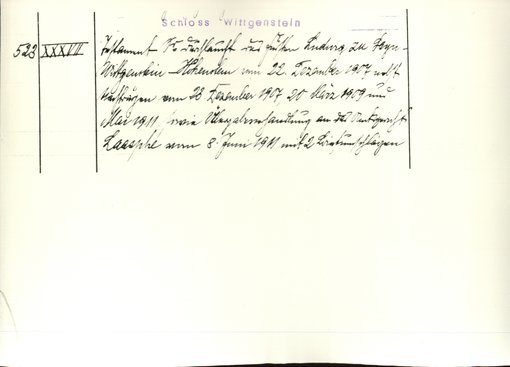 Schloss Wittgenstein
523 XXXVII Testament Sr Durchlaucht des Fürsten Ludwig zu Sayn-
Wittgenstein-Hohenstein vom 22. Dezember 1907 nebst
Nachträgen vom 28. Dezember 1907, 20. März 1909 und
Mai 1911 sowie Übergabeverhandlung an das Amtsgericht
Laasphe vom 8. Juni 1911 mit 2 Briefumschlägen